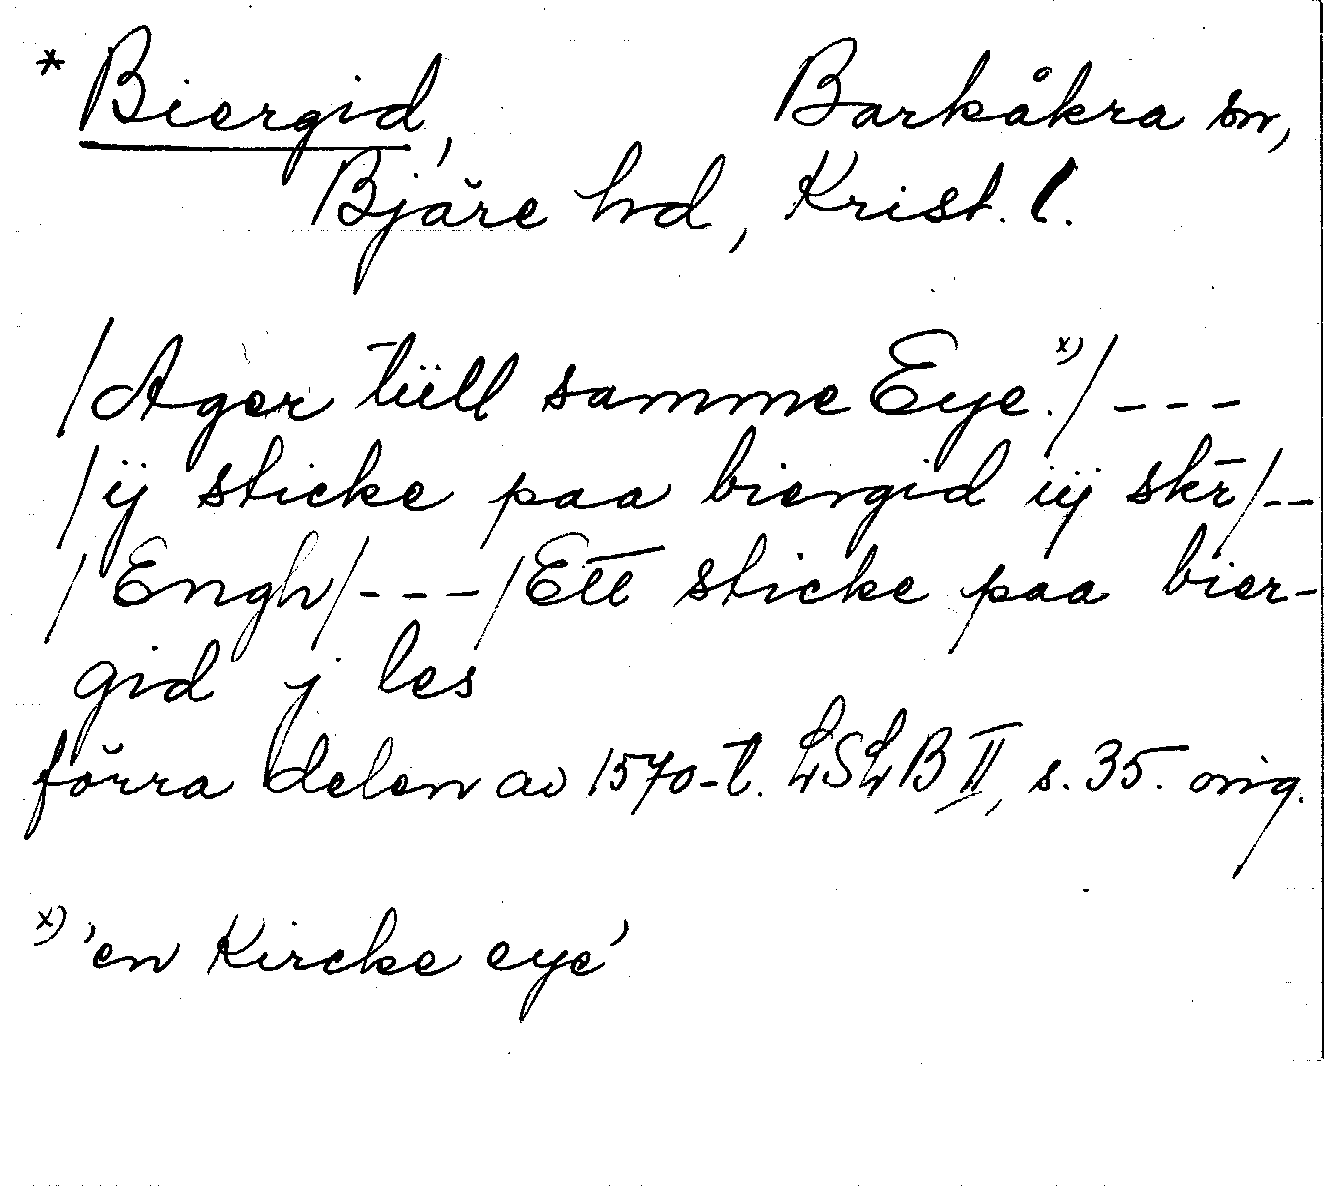 * Biergid, Barkåkra sn,
Bjäre hd, Krist. l.
/Ager tiill samme Eye.x)/ ---
/ij sticke paa biergid iij skr̄/--
/Engh/---/Ett sticke paa bier-
gid j les
förra delen av 1570-t. LSLB II, s. 35. orig.
x) 'en Kircke eye'